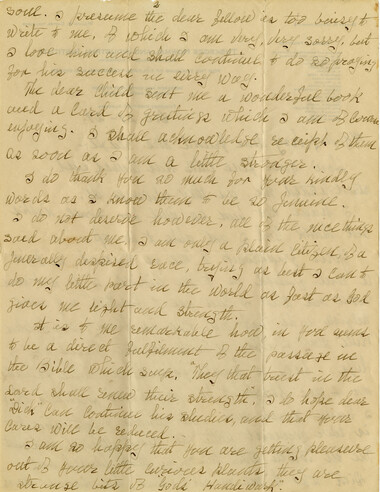 soul. I presume the dear fellow is too busy to
write to me, of which I am very, very sorry, but
I love him and shall continue to do so praying
for his success in every way.
The dear child sent me a wonderful book
and a card of greetings which I am of course
enjoying. I shall acknowledge receipt of them
as soon as I am a little stronger.
I do thank you so much for your kindly
words as I know them to be so genuine.
I do not deserve however, all of the nice things
said about me. I am only a plain citizen, of a
generally despised race, trying as best I can to
do my little part in the world as fast as God
gives me light and strength.
It is to me remarkable how in God seems
to be a direct fulfilment of the passage in
the Bible which says, "They that trust in the
Lord shall renew their strength." I do hope dear
can continue his studies, and that your
cares will be reduced.
I am so happy that you are getting pleasure
out of your little curious plants, they are
strange bits of God's Handiwork".